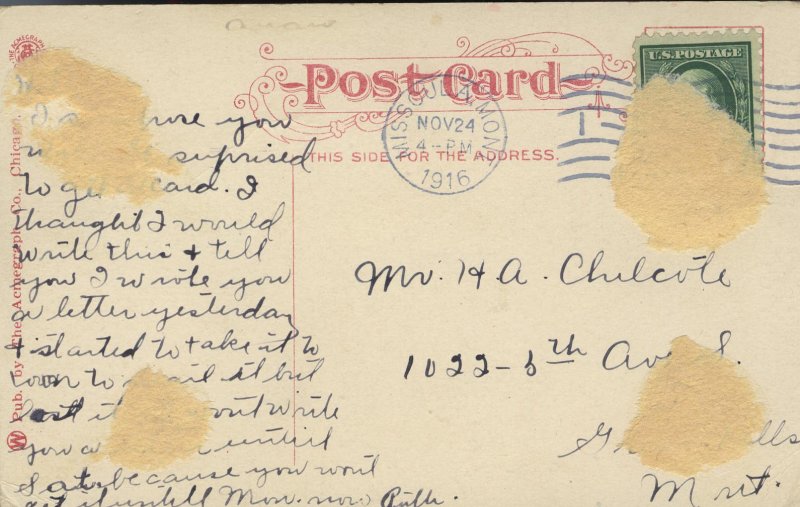 Post Card
THIS SIDE FOR THE ADDRESS.
U.S. POSTAGE
MISSOULA, MONT.
NOV 24
4-PM
1916
Pub. by The Acmegraph Co., Chicago.
THE ACMEGRAPH
you
surprised
to get a card. I
thought I would
write this + tell
you I wrote you
a letter yesterday
+ started to take it to
town to mail it but
lost it wont write
you a until
Sat. because you wont
get it untill Mon. now Ruth.
Mr. H A. Chilcote
1022-5th Ave S.
Mont.